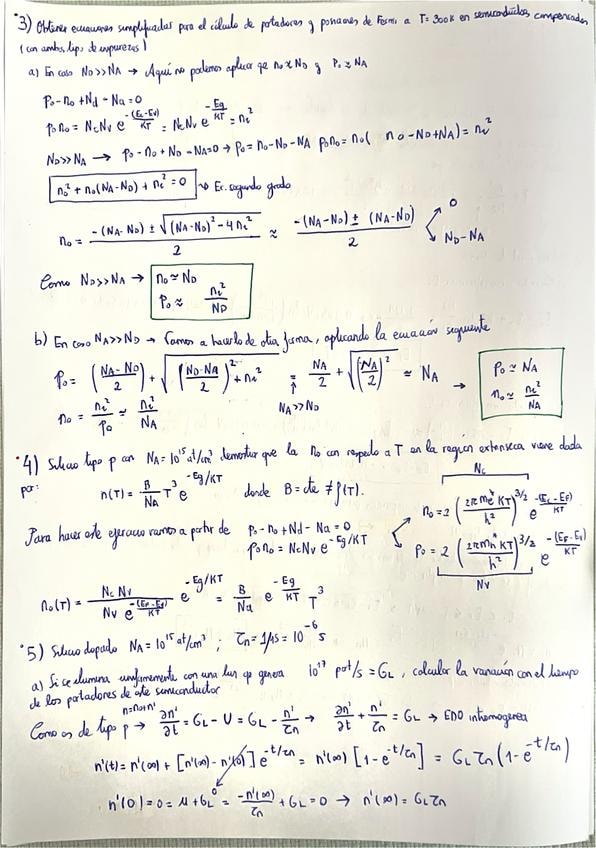 3) Obtener ecuaciones simplificadas para el cálculo de portadores y posiciones de Fermi a T= 300K en semiconductores compensados
(con ambos tipos de impurezas)
a) En caso N_D>>N_A → Aquí no podemos aplicar que n₀≈N_D y P₀≈N_A
P₀-n₀+Nd-Na=0
p₀n₀ = NcNv e^(-(Ec-Ev)/KT) = NcNv e^(-Eg/KT) = ni²
N_D>>N_A → P₀-n₀+N_D-N_A=0 → p₀=n₀-N_D-N_A P₀n₀ = n₀( n₀-N_D+N_A) = ni²
n₀²+n₀(N_A-N_D)+ni²=0 → Ec. segundo grado
n₀ = (-(N_A-N_D) ± √((N_A-N_D)²-4ni²))/2 ≈ (-(N_A-N_D) ± (N_A-N_D))/2 0
N_D-N_A
Como N_D>>N_A → n₀≃N_D
P₀≈ ni²/N_D
b) En caso N_A>>N_D → Vamos a hacerlo de otra forma, aplicando la ecuación siguiente
P₀ = ((N_A-N_D)/2) + √(((N_D-N_A)/2)²+ni²) = N_A/2 + √((N_A/2)²) ≈ N_A → P₀≃N_A
n₀ = ni²/P₀ ≃ ni²/N_A N_A>>N_D n₀≃ ni²/N_A
4) Silicio tipo p con N_A=10¹⁵at/cm³ demostrar que la n₀ con respecto a T en la región extrínseca viene dada
por: n(T) = B/N_A T³ e^(-Eg/KT) donde B=cte ≠ f(T).
Nc
n₀=2 (2πme* KT/h²)^(3/2) e^(-(Ec-EF)/KT)
Para hacer este ejercicio vamos a partir de P₀-n₀+Nd-Na=0
P₀n₀ = NcNv e^(-Eg/KT)
P₀=2 (2πmh* KT/h²)^(3/2) e^(-(EF-Ev)/KT)
Nv
n₀(T) = Nc Nv/(Nv e^(-(EF-Ev)/KT)) e^(-Eg/KT) = B/Na e^(-Eg/KT) T³
5) Silicio dopado N_A=10¹⁵at/cm³ ; τn=1μs=10⁻⁶ s
a) Si se ilumina uniformemente con una luz que genera 10¹⁷ port/s=G_L, calcular la variación con el tiempo
de los portadores de este semiconductor
n=n₀+n'
Como es de tipo p → ∂n'/∂t = G_L-U = G_L - n'/τn → ∂n'/∂t + n'/τn = G_L → EDO inhomogenea
n'(t)=n'(∞)+[n'(∞)-n'(0)] e^(-t/τn) = n'(∞) [1-e^(-t/τn)] = G_L τn (1-e^(-t/τn))
0
n'(0)=0=μ+G_L = -n'(∞)/τn + G_L=0 → n'(∞)=G_Lτn